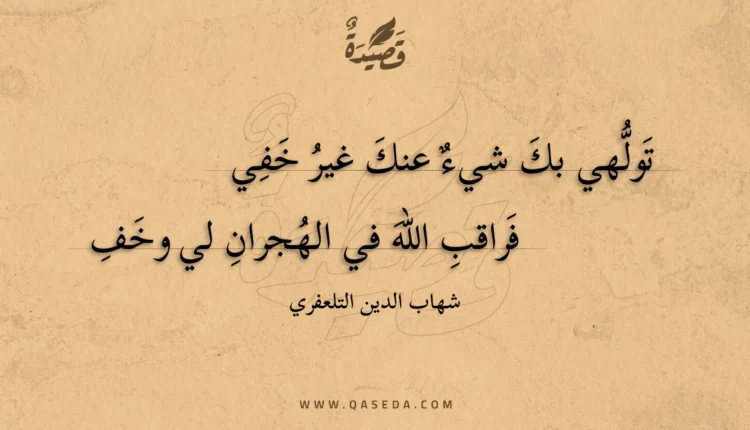 قَصِيدَةٌ
تَولُّهي بكَ شيءٌ عنكَ غيرُ خَفِي
فَراقبِ اللهَ في الهُجرانِ لي وخَفِ
شهاب الدين التلعفري
WWW.QASEDA.COM